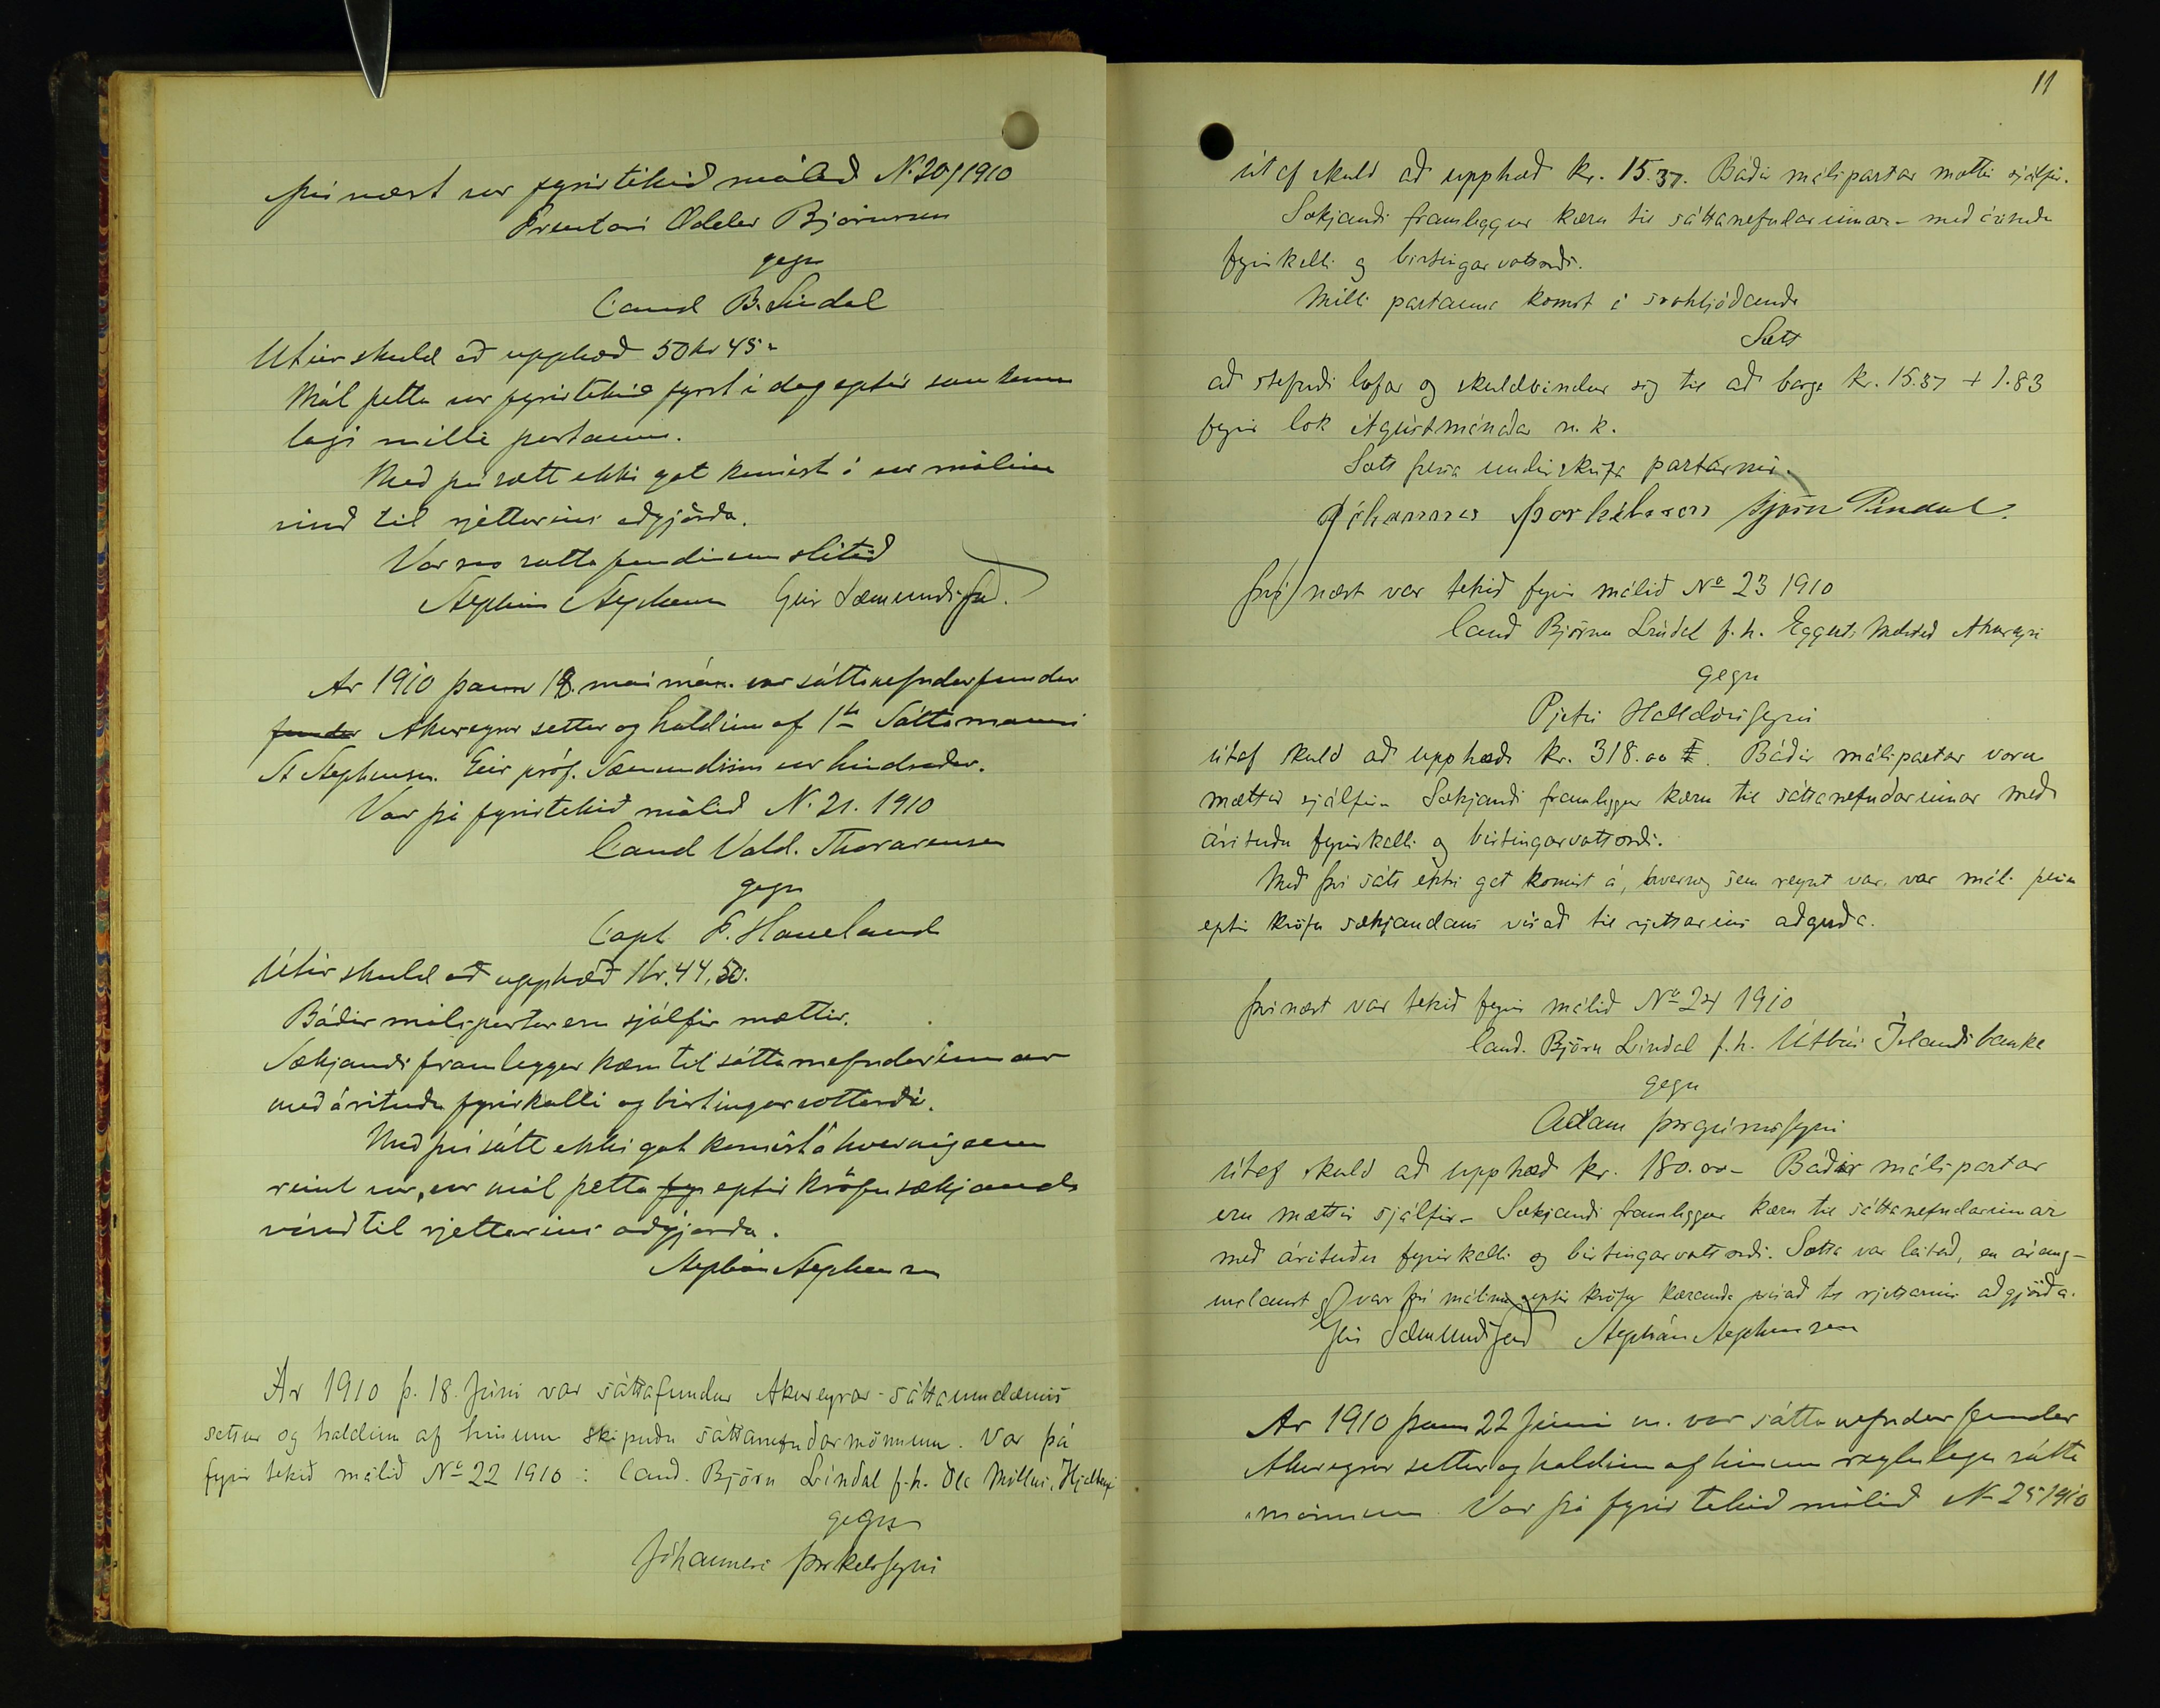 því næst var fyrirtekið málið N. 20/1910
Prentari Oddur Björnsson
gegn
Cand B. Líndal
Útúr skuld að upphæð 50 kr 45 a
Mál þetta var fyrirtekið fyrst í dag eptir samkomu
lagi milli partanna.
Með því sætt ekki gat komist á var málinu
vísað til rjettarins aðgjörða.
Var svo sáttafundinum slitið
Stephán Stephensen Geir Sæmundsson.
Ár 1910 þann 18. maí mán. var sáttanefndarfundur
fundur Akureyrar settur og haldinn af 1ta Sáttamanni
St Stephensen. Geir próf. Sæmundsson var hindraður.
Var þá fyrirtekið málið N. 21. 1910
Cand Vald. Thorarensen
gegn
Capt F. Haueland
Útúr skuld að upphæð kr. 44,50.
Báðir málspartar eru sjálfir mættir.
Sækjandi framleggur kæru til sáttanefndarinnar
með árituðu fyrirkalli og birtingarvottorði.
Með því sátt ekki gat komist á hvernig sem
reint var, var mál þetta fyr eptir kröfu sækjanda
vísað til rjettarins aðgjörða.
Stephán Stephensen
Ár 1910 þ. 18. Júni var sáttafundur Akureyrar-sáttaumdæmis
settur og haldinn af hinum skipuðu sáttanefndarmönnum. Var þá
fyrir tekið málið No 22 1910: Cand. Björn Líndal f.h. Ole Möller, Hjalteyri
gegn
Jóhannesi Þorkelssyni
11
útaf skuld að upphæð kr. 15.37. Báðir málspartar mættir sjálfir.
Sækjandi framleggur kæru til sáttanefndarinnar með árituðu
fyrirkalli og birtingarvottorði.
Milli partanna komst á svohljóðandi
Sætt
að stefndi lofar og skuldbindur sig til að borga kr. 15.37 + 1.83
fyrir lok Ágústmánaðar n.k.
Sætt þessa undirskrifa partarnir.
Jóhannes Þorkelsson Björn Líndal.
Því næst var tekið fyrir málið No 23 1910
Cand Björn Líndal f.h. Eggerts Melsted Akureyri
gegn
Pjetri Halldórssyni
útaf skuld að upphæð kr. 318.00. Báðir málspartar voru
mættir sjálfir. Sækjandi framleggur kæru til sáttanefndarinnar með
árituðu fyrirkalli og birtingarvottorði.
Með því sátt ekki gat komist á, hvernig sem reynt var, var máli þessu
eptir kröfu sækjandans vísað til rjettarins aðgerða.
Því næst var tekið fyrir málið No 24 1910
Cand. Björn Líndal f.h. Útbús Íslandsbanka
gegn
Adam Þorgrímssyni
útaf skuld að upphæð kr. 180.00 - Báðir málspartar
eru mættir sjálfir - Sækjandi framleggur kæru til sáttanefndarinnar
með árituðu fyrirkalli og birtingarvottorði. Sátta var leitað, en árang-
urslaust og var því málinu eptir kröfu kæranda vísað til rjettarins aðgjörða.
Geir Sæmundsson Stephán Stephensen
Ár 1910 þann 22 Júni m. var sáttanefndarfundur
Akureyrar settur og haldinn af hinum reglulegu sátta
mönnum. Var þá fyrir tekið málið N 25 1910